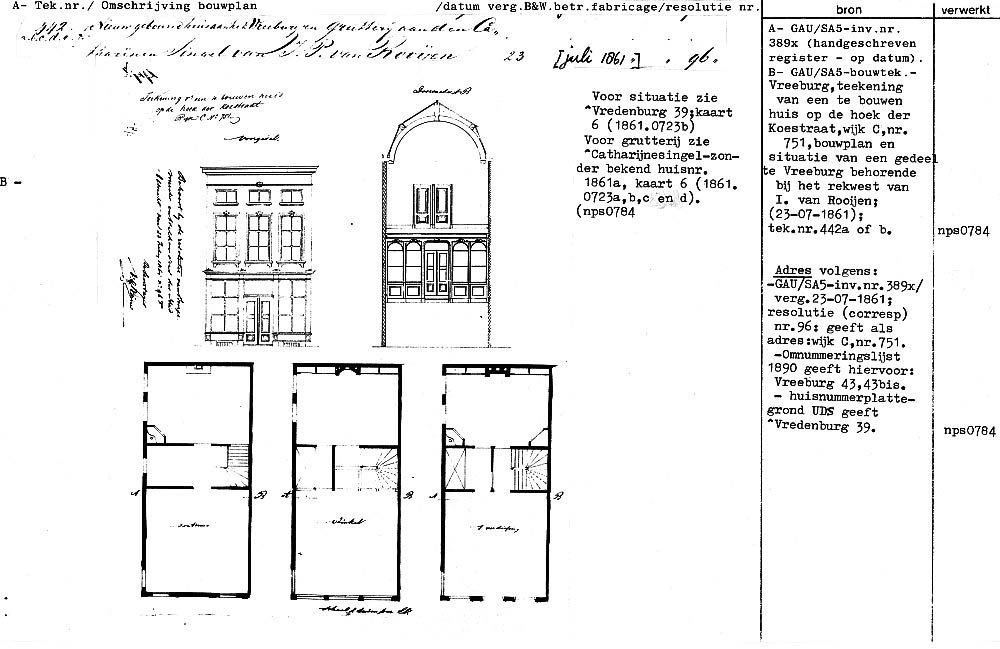 A- Tek.nr./ Omschrijving bouwplan /datum verg.B&W.betr.fabricage/resolutie nr.
bron
verwerkt
442. Nieuw gebouwd huis aan het Vreeburg en Grutterij aan den Ca-
a.b.c.d.e.
tharijnen Singel van J. P. van Rooijen 23 [juli 1861.] . 96.
Teekening v. een te bouwen huis
op de hoek der Koestraat
Wijk C No 751
Voorgevel
Doorsnede A B
B -
Voor situatie zie
^Vredenburg 39;kaart
6 (1861.0723b)
Voor grutterij zie
^Catharijnesingel-zon-
der bekend huisnr.
1861a, kaart 6 (1861.
0723a,b,c en d).
(nps0784
A- GAU/SA5-inv.nr.
389x (handgeschreven
register - op datum).
B- GAU/SA5-bouwtek.-
Vreeburg,teekening
van een te bouwen
huis op de hoek der
Koestraat,wijk C,nr.
751,bouwplan en
situatie van een gedeel
te Vreeburg behorende
bij het rekwest van
I. van Rooijen;
(23-07-1861);
tek.nr.442a of b.
nps0784
Adres volgens:
-GAU/SA5-inv.nr.389x/
verg.23-07-1861;
resolutie (corresp)
nr.96: geeft als
adres:wijk C,nr.751.
-Omnummeringslijst
1890 geeft hiervoor:
Vreeburg 43,43bis.
- huisnummerplatte-
grond UDS geeft
^Vredenburg 39.
nps0784
A B A B A B
Winkel